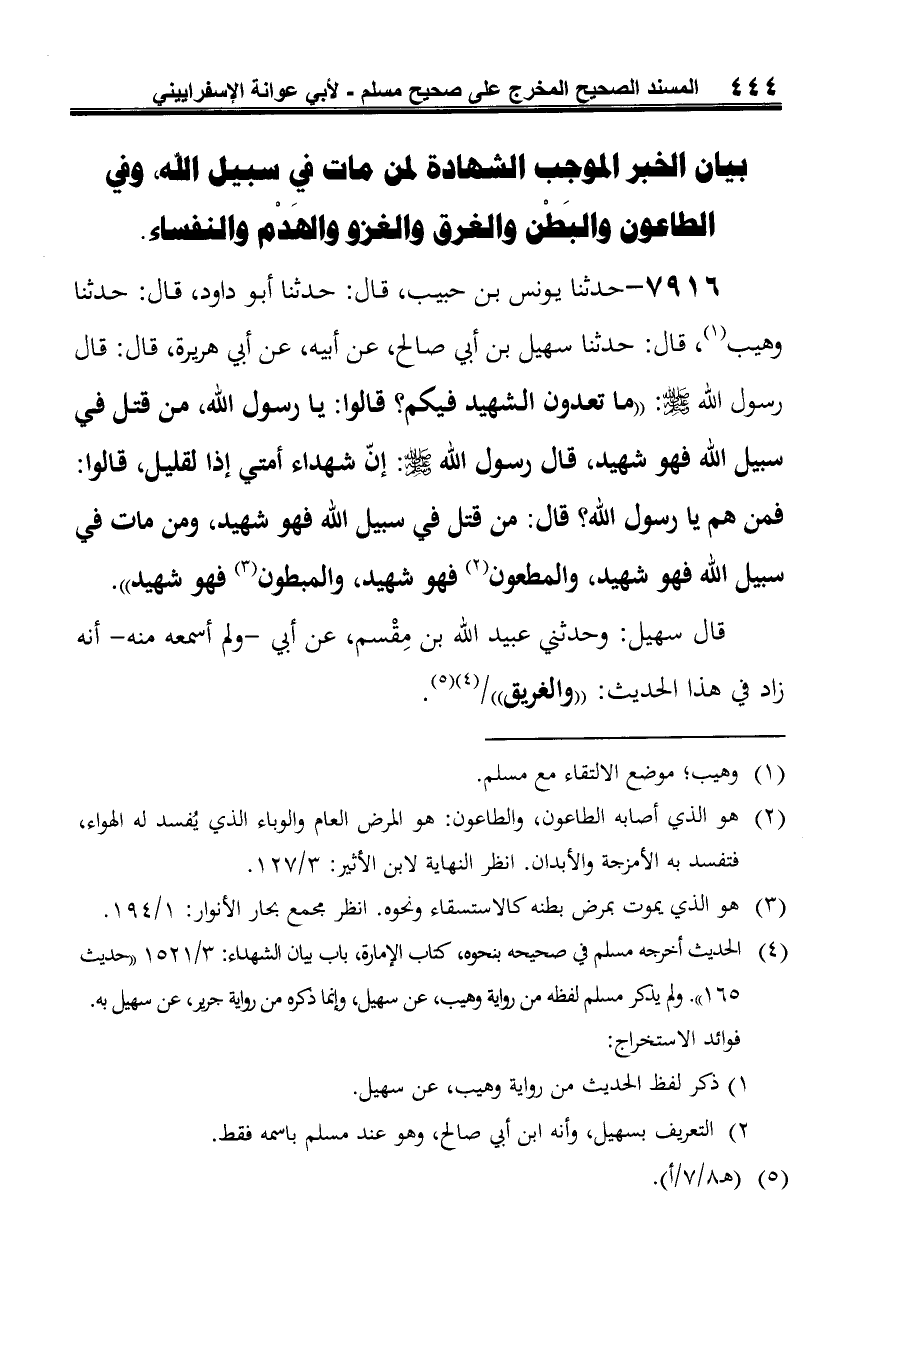 ٤٤٤ المسند الصحيح المخرج على صحيح مسلم - لأبي عوانة الإسفراييني
بيان الخبر الموجب الشهادة لمن مات في سبيل الله، وفي
الطاعون والبَطْن والغرق والغزو والهَدْم والنفساء.
٧٩١٦-حدثنا يونس بن حبيب، قال: حدثنا أبو داود، قال: حدثنا
وهيب(١)، قال: حدثنا سهيل بن أبي صالح، عن أبيه، عن أبي هريرة، قال: قال
رسول الله ﷺ: ((ما تعدون الشهيد فيكم؟ قالوا: يا رسول الله، من قتل في
سبيل الله فهو شهيد، قال رسول الله ﷺ: إنّ شهداء أمتي إذا لقليل، قالوا:
فمن هم يا رسول الله؟ قال: من قتل في سبيل الله فهو شهيد، ومن مات في
سبيل الله فهو شهيد، والمطعون(٢) فهو شهيد، والمبطون(٣) فهو شهيد)).
قال سهيل: وحدثني عبيد الله بن مِقْسم، عن أبي -ولم أسمعه منه- أنه
زاد في هذا الحديث: ((والغريق))/(٤)(٥).
(١) وهيب؛ موضع الالتقاء مع مسلم.
(٢) هو الذي أصابه الطاعون، والطاعون: هو المرض العام والوباء الذي يُفسد له الهواء،
فتفسد به الأمزجة والأبدان. انظر النهاية لابن الأثير: ١٢٧/٣.
(٣) هو الذي يموت بمرض بطنه كالاستسقاء ونحوه. انظر مجمع بحار الأنوار: ١٩٤/١.
(٤) الحديث أخرجه مسلم في صحيحه بنحوه، كتاب الإمارة، باب بيان الشهداء: ١٥٢١/٣ ((حديث
١٦٥)). ولم يذكر مسلم لفظه من رواية وهيب، عن سهيل، وإنما ذكره من رواية جرير، عن سهيل به.
فوائد الاستخراج:
١) ذكر لفظ الحديث من رواية وهيب، عن سهيل.
٢) التعريف بسهيل، وأنه ابن أبي صالح، وهو عند مسلم باسمه فقط.
(٥) (هـ٧/٨/أ).